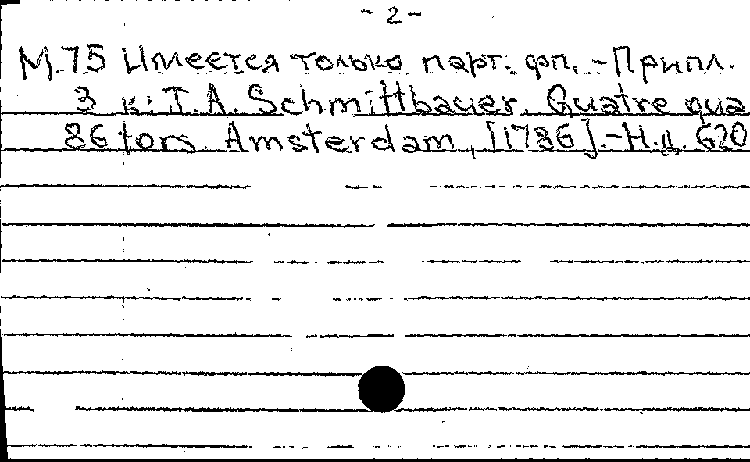 - 2 -
М.75 Имеется только парт. фп. - Припл.
3 к: J.A. Schmittbauer. Quatre qua
86 tors. Amsterdam, [1786]. - Н.д. 620